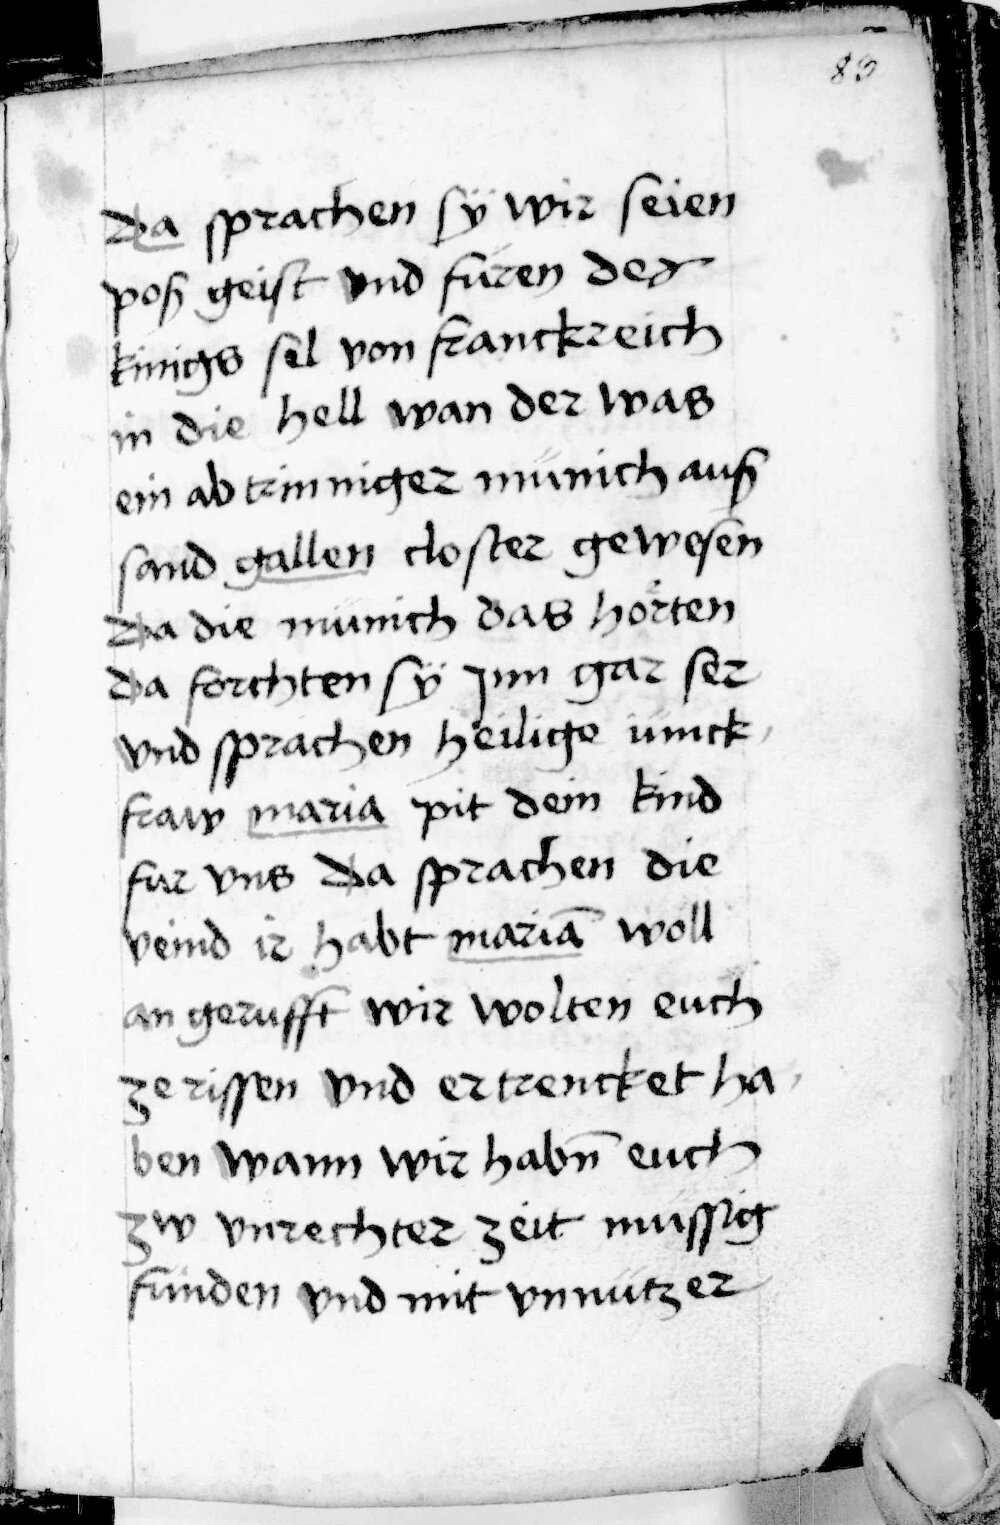 83
da sprachen sÿ wir seien
poß geist vnd fúren des
kinigs sel von franckreich
in die hell wan der was
ein abtrinniger múnich auß
sand gallen closter gewesen
da die múnich das horten
da forchten sÿ jnn gar ser
vnd sprachen heilige iunck,
fraw maria pit dein kind
fur vns da sprachen die
veind ir habt mariā woll
an gerufft wir wolten euch
zerissen vnd ertrencket ha,
ben wann wir habn̄ euch
zw vnrechter zeit mussig
funden vnd mit vnnutzer